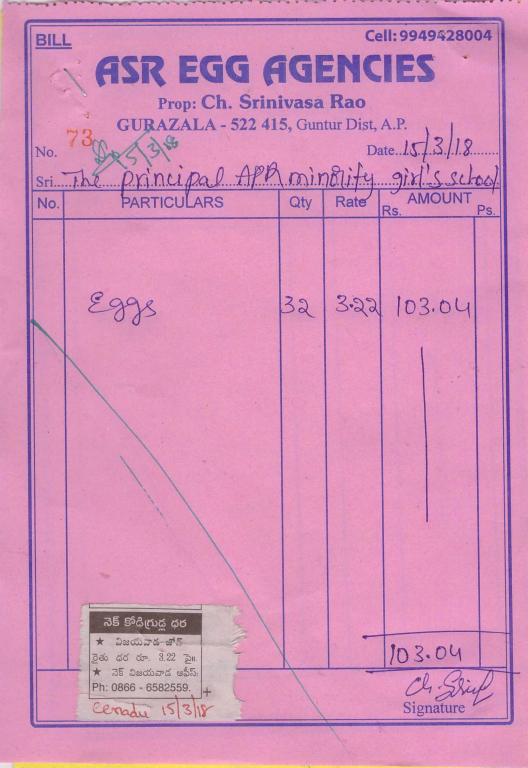 BILL
Cell: 9949428004
ASR EGG AGENCIES
Prop: Ch. Srinivasa Rao
GURAZALA - 522 415, Guntur Dist, A.P.
No. 73
15/3/18
Date 15/3/18
Sri. The principal APR minority girl's school
No. PARTICULARS Qty Rate AMOUNT
Rs. Ps.
Eggs 32 3.22 103.04
103.04
నెక్ కోడిగ్రుడ్ల ధర
★ విజయవాడ జోన్
రైతు ధర రూ. 3.22 పై॥
★ నెక్ విజయవాడ ఆఫీస్:
Ph: 0866 - 6582559.
Eenadu 15/3/18
Signature